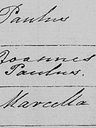 Paulus
Joannes
Paulus.
Marcella